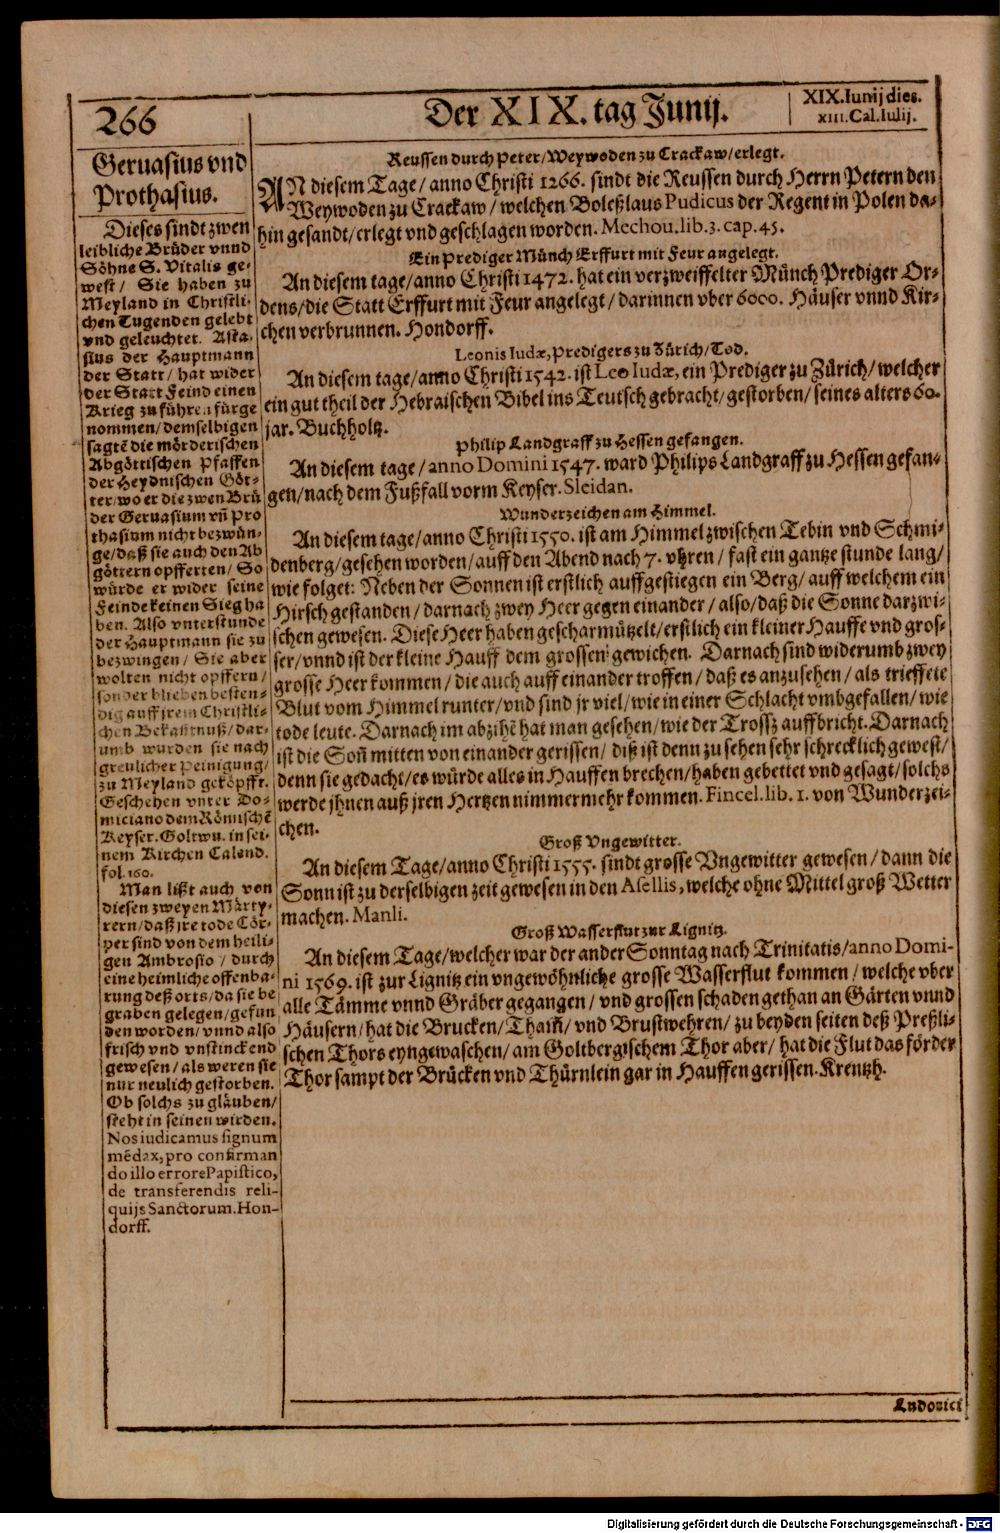 266
Der XIX. tag Junij.
XIX. Iunij dies.
xiii. Cal. Iulij.
Geruasius vnd
Prothasius.
Dieses sindt zwen
leibliche Brüder vnnd
Söhne S. Vitalis ge-
west / Sie haben zu
Meyland in Christli-
chen Tugenden gelebt
vnd geleuchtet. Asta-
sius der Hauptmann
der Statt / hat wider
der Statt Feind einen
Krieg zu führen fürge
nommen / demselbigen
sagtē die mörderischen
Abgöttischen Pfaffen
der Heydnischen Göt-
ter / wo er die zwen Brü
der Geruasium vñ Pro
thasium nicht bezwün-
ge / daß sie auch den Ab
göttern opfferten / So
würde er wider seine
Feinde keinen Sieg ha
ben. Also vnterstunde
der Hauptmann sie zu
bezwingen / Sie aber
wolten nicht opffern /
sonder blieben besten-
dig auff jrem Christli-
chen Bekañtnuß / dar-
umb wurden sie nach
greulicher Peinigung /
zu Meyland geköpfft.
Geschehen vnter Do-
miciano dem Römischē
Keyser. Goltwu. in sei-
nem Kirchen Calend.
fol. 160.
Man lißt auch von
diesen zweyen Märty-
rern / daß jre tode Cör-
per sind von dem heili-
gen Ambrosio / durch
eine heimliche offenba-
rung deß orts / da sie be
graben gelegen / gefun
den worden / vnnd also
frisch vnd vnstinckend
gewesen / als weren sie
nur neulich gestorben.
Ob solchs zu gläuben /
steht in seinen wirden.
Nos iudicamus signum
mēdax, pro confirman
do illo errore Papistico,
de transferendis reli-
quijs Sanctorum. Hon-
dorff.
Reussen durch Peter / Weywoden zu Crackaw / erlegt.
AN diesem Tage / anno Christi 1266. sindt die Reussen durch Herrn Petern den
Weywoden zu Crackaw / welchen Boleßlaus Pudicus der Regent in Polen da-
hin gesandt / erlegt vnd geschlagen worden. Mechou. lib. 3. cap. 45.
Ein Prediger Münch Erffurt mit Feur angelegt.
An diesem tage / anno Christi 1472. hat ein verzweiffelter Münch Prediger Or-
dens / die Statt Erffurt mit Feur angelegt / darinnen vber 6000. Häuser vnnd Kir-
chen verbrunnen. Hondorff.
Leonis Iudæ, Predigers zu Zürich / Tod.
An diesem tage / anno Christi 1542. ist Leo Iudæ, ein Prediger zu Zürich / welcher
ein gut theil der Hebraischen Bibel ins Teutsch gebracht / gestorben / seines alters 60.
jar. Buchholtz.
Philip Landgraff zu Hessen gefangen.
An diesem tage / anno Domini 1547. ward Philips Landgraff zu Hessen gefan-
gen / nach dem Fußfall vorm Keyser. Sleidan.
Wunderzeichen am Himmel.
An diesem tage / anno Christi 1550. ist am Himmel zwischen Tebin vnd Schmi-
denberg / gesehen worden / auff den Abend nach 7. vhren / fast ein gantze stunde lang /
wie folget: Neben der Sonnen ist erstlich auffgestiegen ein Berg / auff welchem ein
Hirsch gestanden / darnach zwey Heer gegen einander / also / daß die Sonne darzwi-
schen gewesen. Diese Heer haben gescharmützelt / erstlich ein kleiner Hauffe vnd gros-
ser / vnnd ist der kleine Hauff dem grossen gewichen. Darnach sind widerumb zwey
grosse Heer kommen / die auch auff einander troffen / daß es anzusehen / als trieffete
Blut vom Himmel runter / vnd sind jr viel / wie in einer Schlacht vmbgefallen / wie
tode leute. Darnach im abzihē hat man gesehen / wie der Trossz auffbricht. Darnach
ist die Soñ mitten von einander gerissen / diß ist denn zu sehen sehr schrecklich gewest /
denn sie gedacht / es würde alles in Hauffen brechen / haben gebettet vnd gesagt / solchs
werde jhnen auß jren Hertzen nimmermehr kommen. Fincel. lib. 1. von Wunderzei-
chen.
Groß Vngewitter.
An diesem Tage / anno Christi 1555. sindt grosse Vngewitter gewesen / dann die
Sonn ist zu derselbigen zeit gewesen in den Asellis, welche ohne Mittel groß Wetter
machen. Manli.
Groß Wasserflut zur Lignitz.
An diesem Tage / welcher war der ander Sonntag nach Trinitatis / anno Domi-
ni 1569. ist zur Lignitz ein vngewöhnlitze grosse Wasserflut kommen / welche vber
alle Tämme vnnd Gräber gegangen / vnd grossen schaden gethan an Gärten vnnd
Häusern / hat die Brucken / Tham̃ / vnd Brustwehren / zu beyden seiten deß Preßli-
schen Thors eyngewaschen / am Goltbergischem Thor aber / hat die Flut das förder
Thor sampt der Brücken vnd Thürnlein gar in Hauffen gerissen. Krentzh.
Ludovici
Digitalisierung gefördert durch die Deutsche Forschungsgemeinschaft - DFG